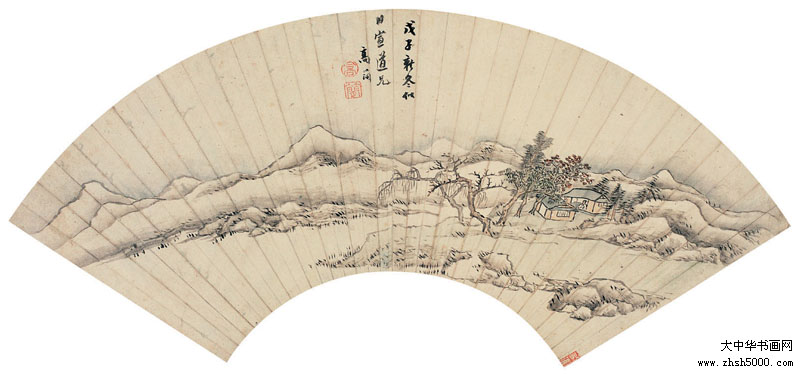 戊子新冬似
日宣道兄
高簡
大中华书画网
www.zhsh5000.com